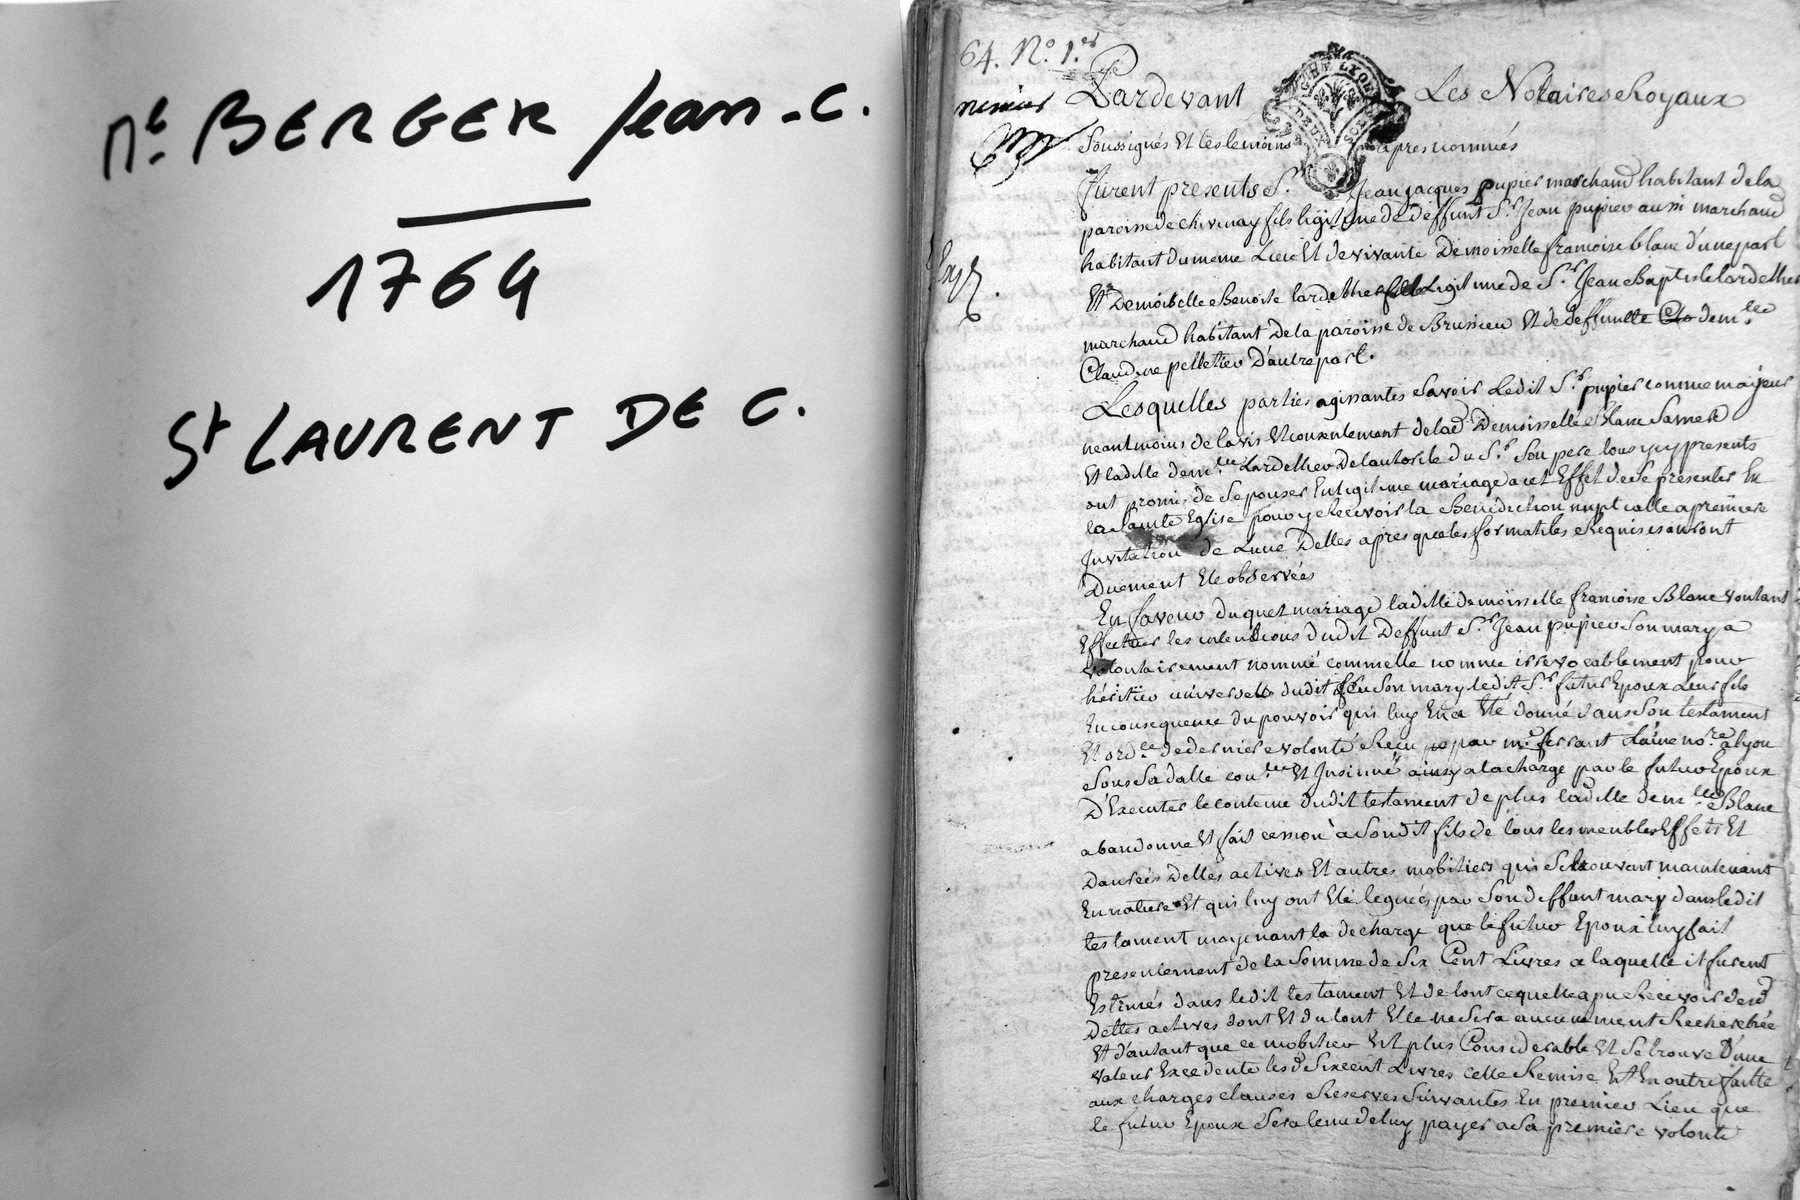 Me BERGER Jean-C.
1764
St LAURENT DE C.
64. No. 1.er
Pardevant Les Notaires Royaux
Soussignés Et tesmoins apres nommés
furent presents S.r Jean Jacques pupier marchand habitant de la
paroisse de chevenay fils ligitime de deffunt S.r Jean pupier aussi marchand
habitant du meme Lieu Et de vivante Demoisselle francoise blanc d'une part
Et Demoiselle Benoite lardellier fille Ligitime de S.r Jean Baptiste lardellier
marchand habitant de la paroisse de Brussieu Et de deffuntte dem.lle
Claudine pelletier D'autre part.
Lesquelles parties agissantes savoir Ledit S.r pupier comme majeur
neantmoins de lavis Et consentement de lad Demoisselle Blanc Sa mere
Et laditte dem.lle Lardellier de lautorité du S.r Son pere tous icy presents
ont promis de Sepouser En ligitime mariage a cet Effet de se presenter En
la Sainte Eglise pour y Recevoir la Benediction nuptialle a premiere
Invitation de Lune Delles apres que les formalités Requises auront
Duement Eté observées
En faveur duquel mariage laditte demoisselle francoise Blanc voulant
Effectuer les intentions dudit Deffunt S.r Jean pupier Son mary a
volontairement nommé comme elle nomme irrevocablement pour
héritier universelle dudit feu Son mary ledit S.r futur Epoux Leur fils
En consequence du pouvoir qui luy En a Eté donné dans Son testament
Et ord.ce de derniere volonté Recu par me ferrant lainé no.re a lyon
Sous Sa datte con.llé Et Insinué ainsy a la charge par le futur Epoux
D'Executer le contenu dudit testament de plus laditte dem.lle Blanc
abandonne Et fait cession a Sondit fils de tous les meubles Effets Et
Danrées Dettes actives Et autres mobiliers qui Se trouvent maintenant
En nature Et qui luy ont Eté legués par Son deffunt mary dans ledit
testament moyenant la décharge que le futur Epoux luy fait
presentement de la Somme de Six Cent Livres a laquelle il furent
Estimés dans ledit testament Et de tout ce quelle a pu Recevoir desd
Dettes actives dont Et du tout Elle ne Sera aucunement Recherchée
Et d'autant que ce mobilier Est plus Considerable Et Se trouve D'une
valeur Excedente lesd Six cent Livres cette Remise Est En outre faitte
aux charges clauses Reserves Suivantes En premier Lieu que
le futur Epoux Sera tenu de luy payer a Sa premiere volonté